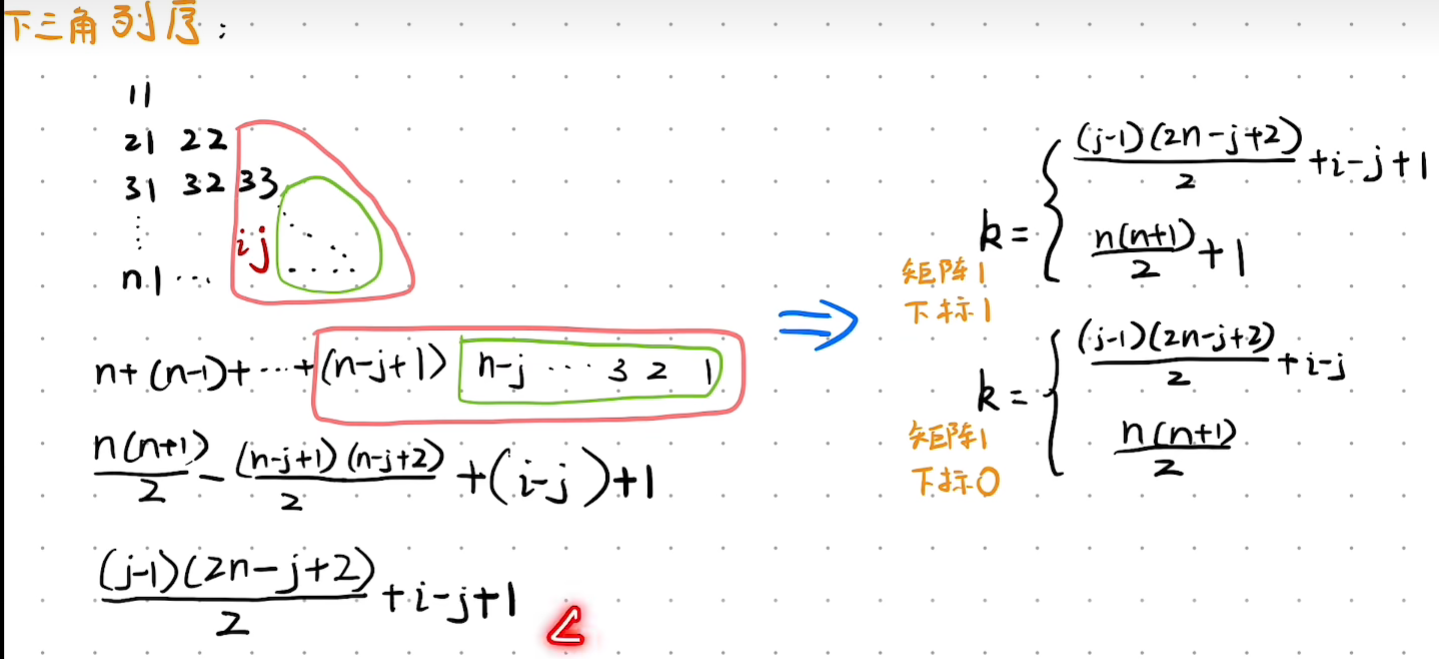 下三角列序：
11
21 22
31 32 33
⋮ ij ⋱
n1 ⋯ ....
n+(n-1)+⋯+(n-j+1) n-j ⋯ 3 2 1
n(n+1)/2 - (n-j+1)(n-j+2)/2 +(i-j)+1
(j-1)(2n-j+2)/2 +i-j+1
⇒
k= { (j-1)(2n-j+2)/2 +i-j+1
n(n+1)/2 +1
矩阵1
下标1
k= { (j-1)(2n-j+2)/2 +i-j
n(n+1)/2
矩阵1
下标0